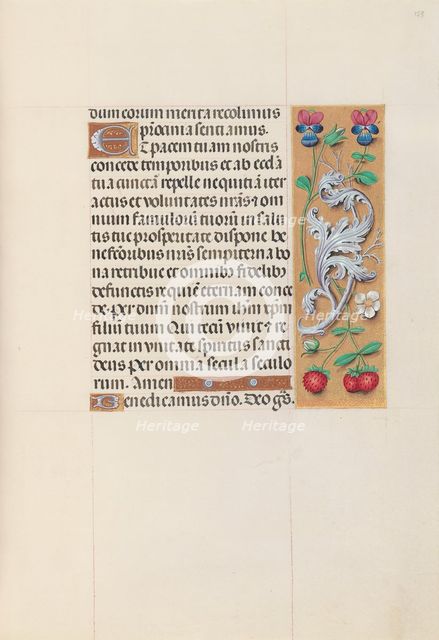 153
dum eorum merita recolimus
Et procinia sentiamus.
Et pacem tuam nostris
concede temporibus et ab eccľia
tua cunctam repelle nequitiam iter
actus et voluntates nr̃as ⁊ om
nium famulorum tuorum in salu
tis tue prosperitate dispone be
nefactoribus nr̃is sempiterna bo
na retribue et omnibus fidelibꝰ
defunctis requiẽ eternam conce
de. per dñm nostrum ihm xp̃m
filium tuum Qui tecũ viuit ⁊ re
gnat in vnitate spiritus sancti
deus per omnia secula seculo
rum. Amen
Benedicamus dño. Deo gr̃s.
Heritage
Heritage
Heritage
Heritage
Heritage
Heritage